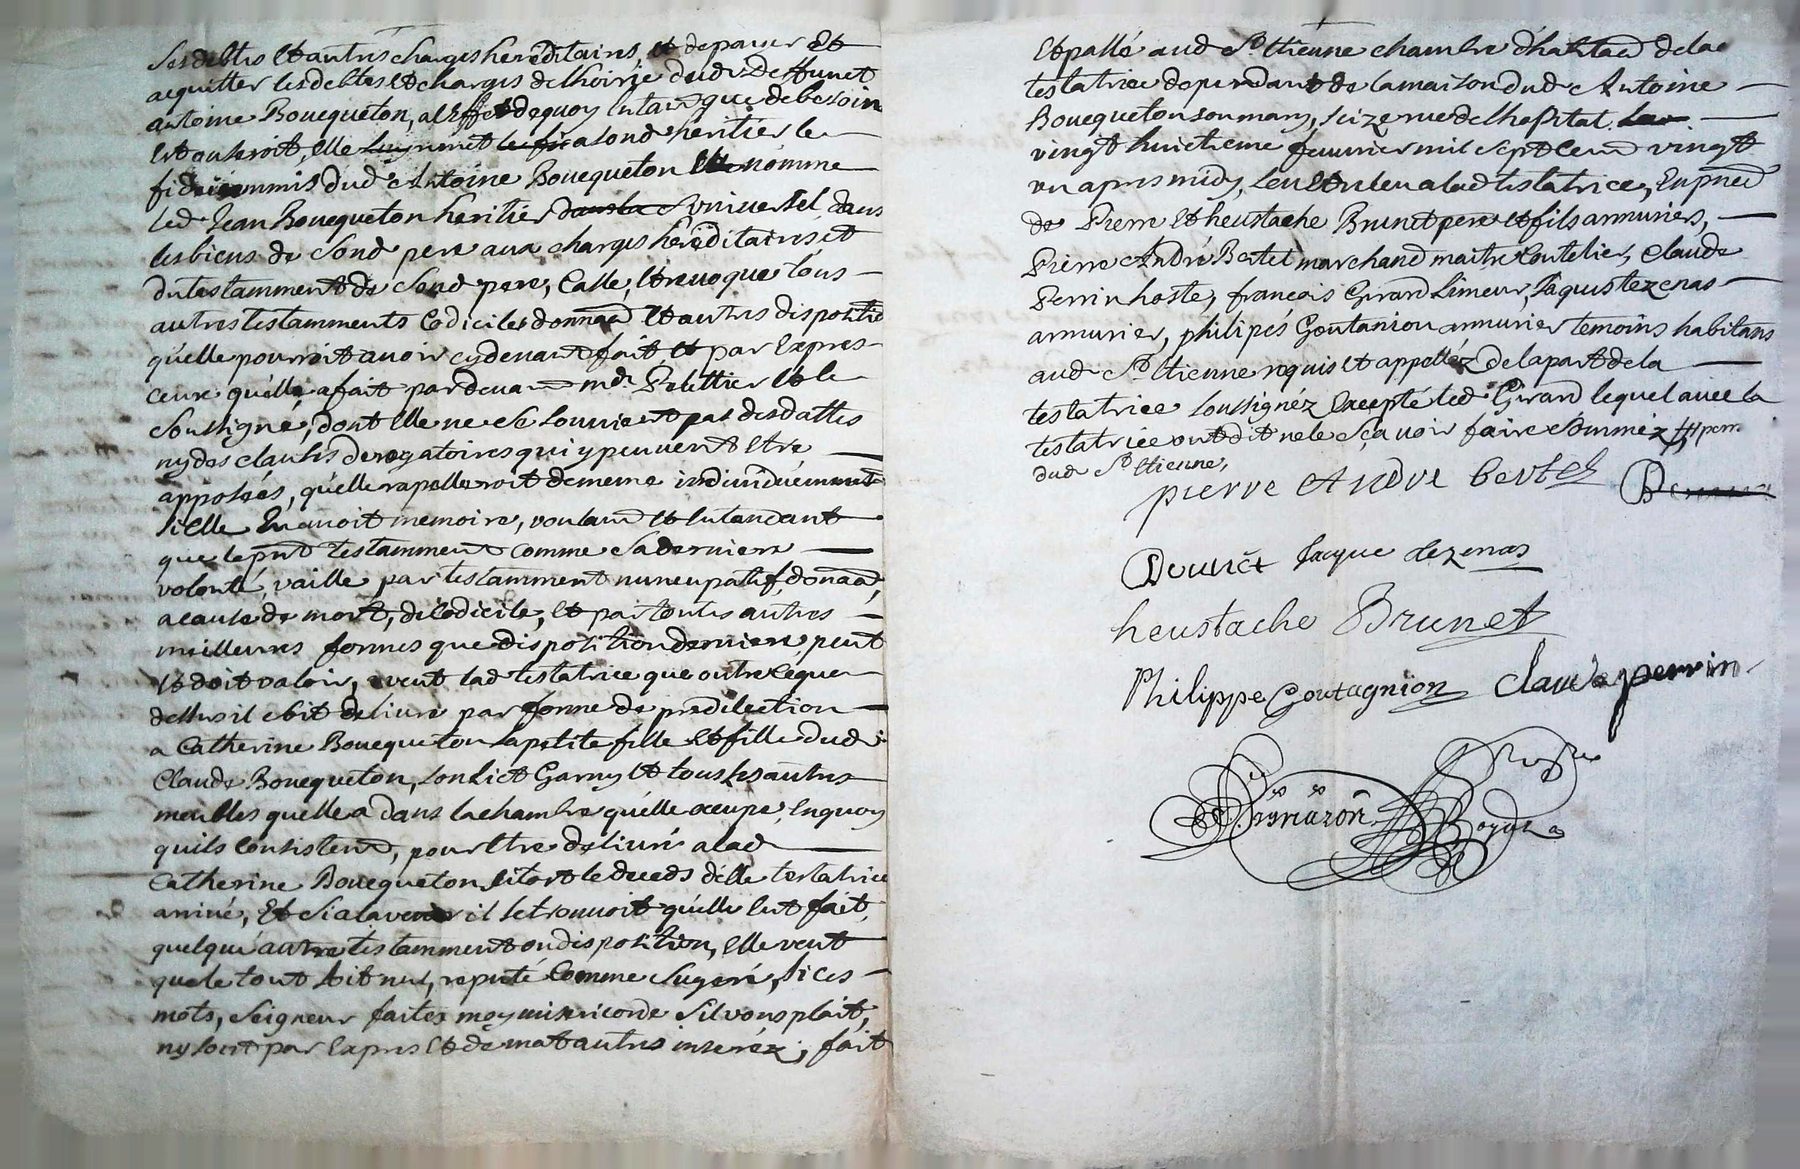 ses debtes et autres charges hereditaires, et de payer et
acquitter les debtes et charges de lhoirie dud. deffunct
antoine Boucqueton, a l'effet de quoy en tant que de besoin
est ou seroit, elle a sond. heritier le
fideicommis dud. Antoine Boucqueton elle nomme
led. Jean Boucqueton heritier dans la universel, dans
les biens de sond. pere aux charges hereditaires et
du testamment de sond. pere, Casse, et revoque tous
autres testamments Codiciles donnaõn et autres dispositiõ
qu'elle pourroit avoir cy devant fait et par Expres
ceux qu'elle a fait pardevant mes. Pelettier et le
soussigné, dont elle ne se souvient pas des dattes
ny des clauses derogatoires qui y peuvent etre
apposées, qu'elle rapelleroit de meme individuemment
si elle En avoit memoire, voulant et Entendant
que le pñt testamment comme sa derniere
volonté, vaille par testamment nuncupatif, donaõn,
a cause de mort, de Codicile, et par toutes autres
meilleures formes que disposition derniere peut
et doit valoir, veut lad. testatrice que outre ce que
dessus il soit delivré par forme de predilection
a Catherine Boucqueton sa petite fille et fille dud.
Claude Boucqueton, son Lict Garny et tous les autres
meubles qu'elle a dans la chambre qu'elle occupe, En quoy
quils Consistent, pour etre delivré a lad.
Catherine Boucqueton sitost le deceds d'elle testatrice
arrivé, et si a lavenir il se trouvoit qu'elle eut fait,
quelque autre testamment ou disposition, elle veut
que le tout soit nul, reputé Comme sugeré, si ces
mots, Seigneur faites moy misericorde s'il vous plait,
ny sont par Expres et de mot autres inserés; fait
Et passé aud. St. Etienne chambre d'habitaõn de lad.
testatrice dependant de la maison dud. Antoine
Boucqueton son mary, size rue de lhospital.
vingt huictieme fevvrier mil sept cent vingt
un apres midy, Leu et releu a lad. testatrice, En pñce
de Pierre et heustache Brunet pere et fils armuriers,
Pierre André Bertet marchand maitre Coutelier, Claude
Perrin hoste, francois Girard Limeur, Jaques Dezenas
armurier, philipes Goutanion armurier temoins habitans
aud. St. Etienne requis et appellez de la part de la
testatrice soussignéz Excepté led. Girard lequel avec la
testatrice ont dit ne le sçavoir faire sommez
dud. St. Etienne,
pierre Andre bertet
Brunet Jacque dezenas
heustache Brunet
Philippe Goutagnion claude perrin